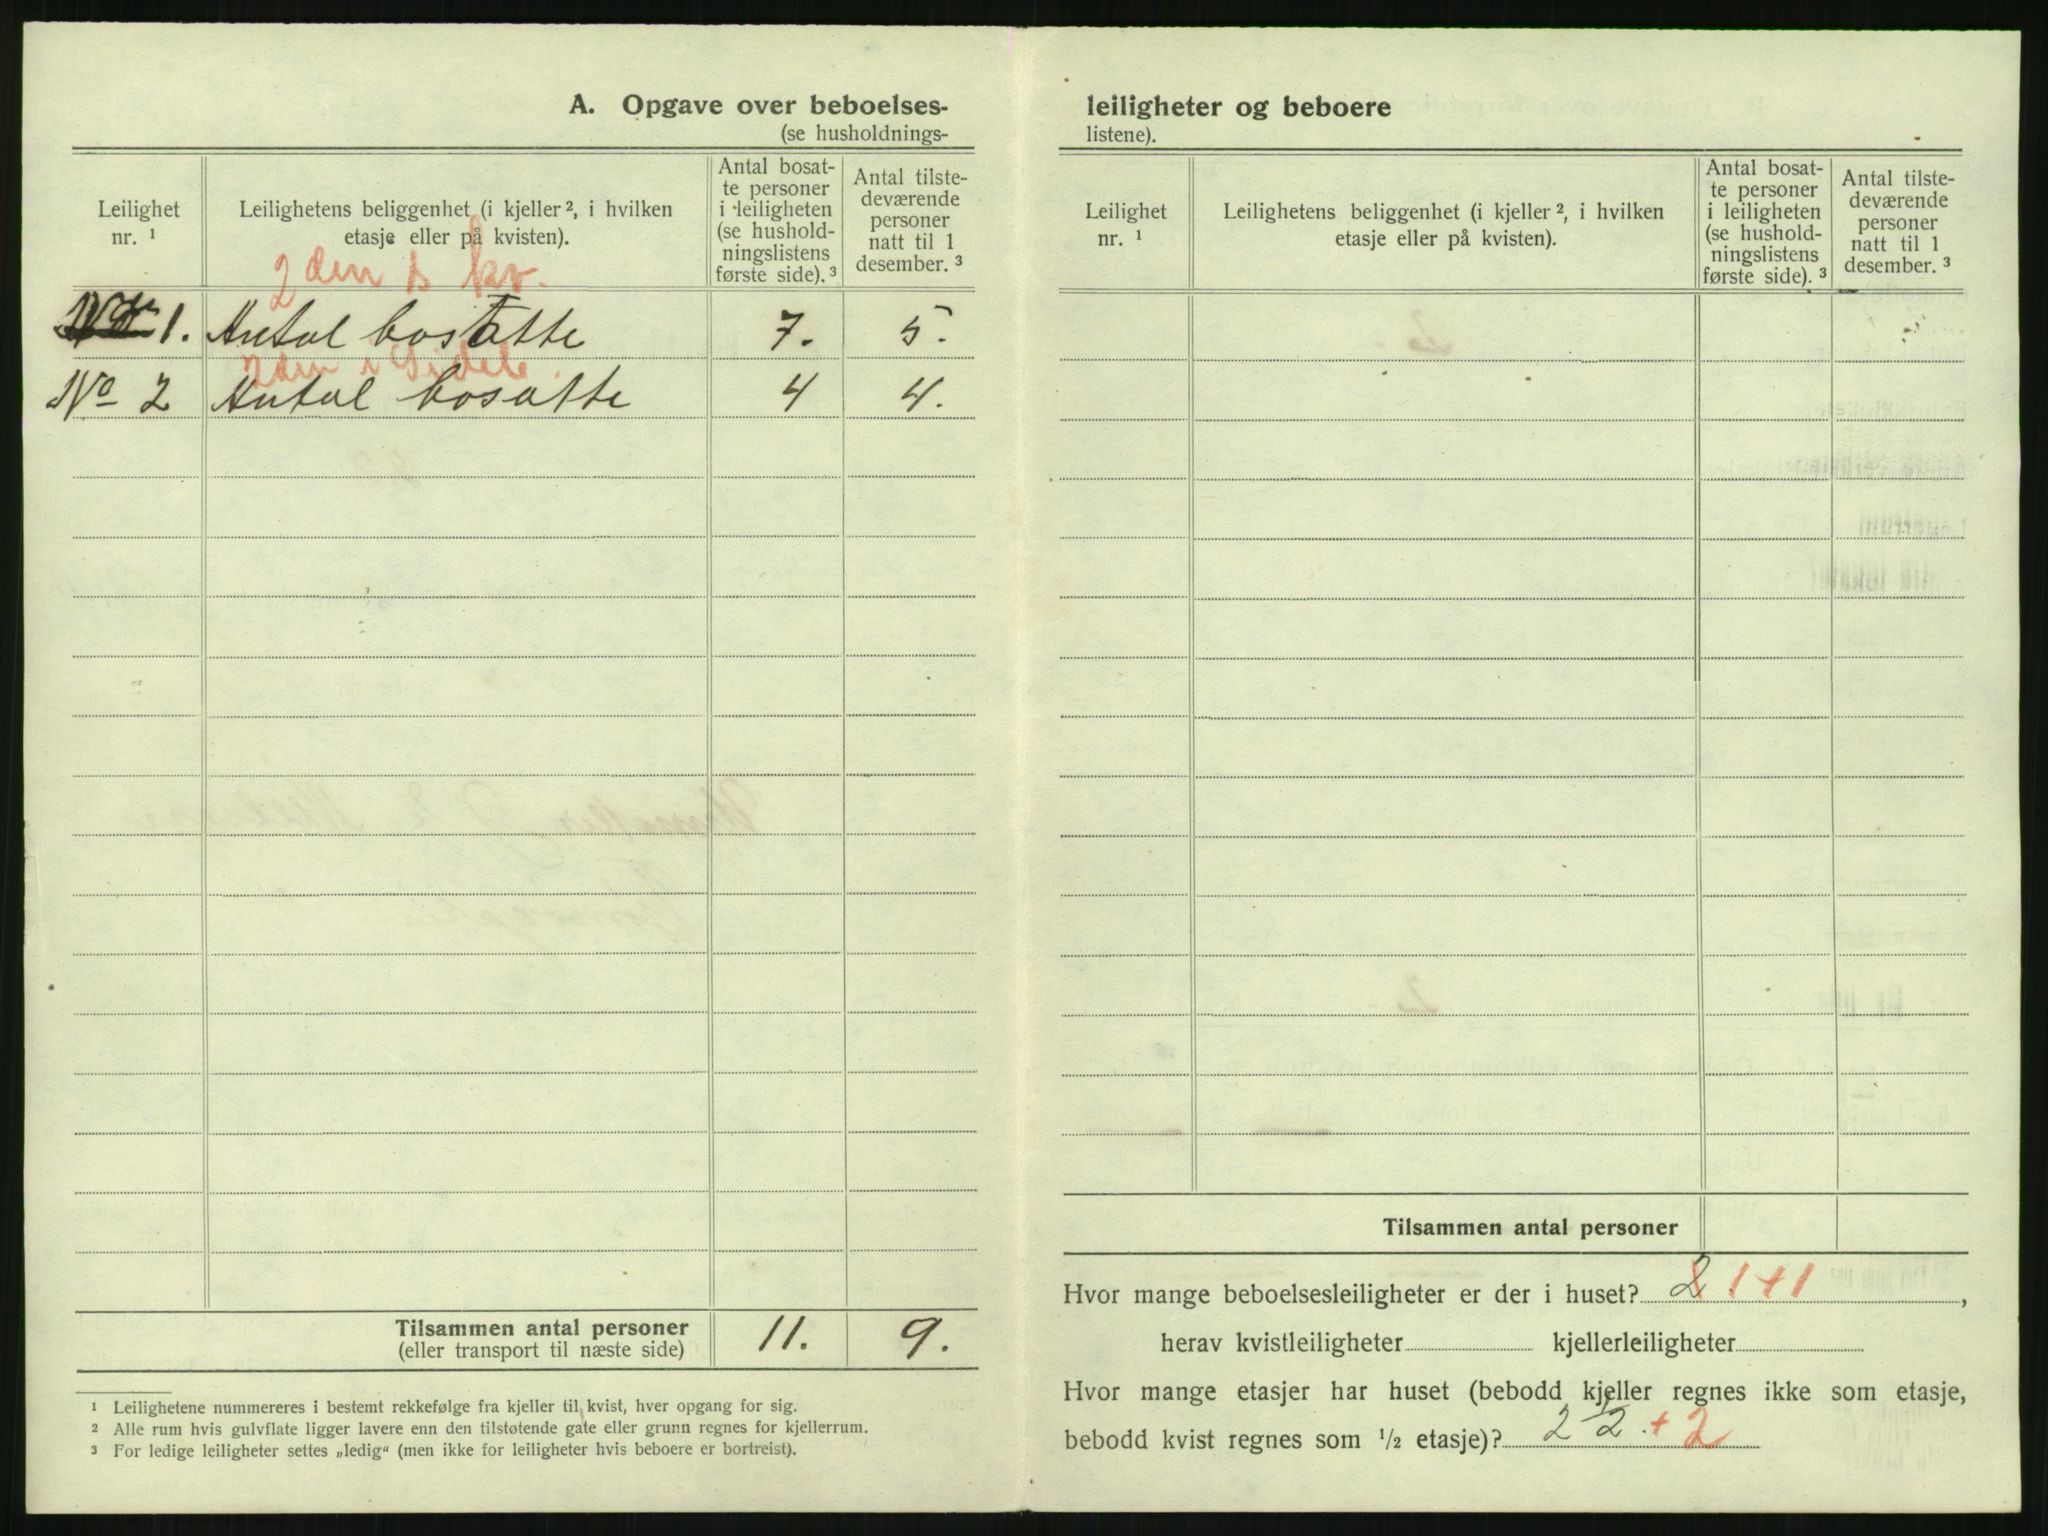 A. Opgave over beboelses-
(se husholdnings-
Leilighet nr. ¹
Leilighetens beliggenhet (i kjeller ², i hvilken
etasje eller på kvisten).
Antal bosat-
te personer
i leiligheten
(se hushold-
ningslistens
første side). ³
Antal tilste-
deværende
personer
natt til 1
desember. ³
2den kv.
1. Antal bosatte 7. 5.
2den i Sidele
No 2 Antal bosatte 4 4.
Tilsammen antal personer 11. 9.
(eller transport til næste side)
¹ Leilighetene nummereres i bestemt rekkefølge fra kjeller til kvist, hver opgang for sig.
² Alle rum hvis gulvflate ligger lavere enn den tilstøtende gate eller grunn regnes for kjellerrum.
³ For ledige leiligheter settes „ledig“ (men ikke for leiligheter hvis beboere er bortreist).
leiligheter og beboere
listene).
Leilighet nr. ¹
Leilighetens beliggenhet (i kjeller ², i hvilken
etasje eller på kvisten).
Antal bosat-
te personer
i leiligheten
(se hushold-
ningslistens
første side). ³
Antal tilste-
deværende
personer
natt til 1
desember. ³
Tilsammen antal personer
Hvor mange beboelsesleiligheter er der i huset? 2 1+1,
herav kvistleiligheter kjellerleiligheter
Hvor mange etasjer har huset (bebodd kjeller regnes ikke som etasje,
bebodd kvist regnes som ½ etasje)? 2 ½. + 2